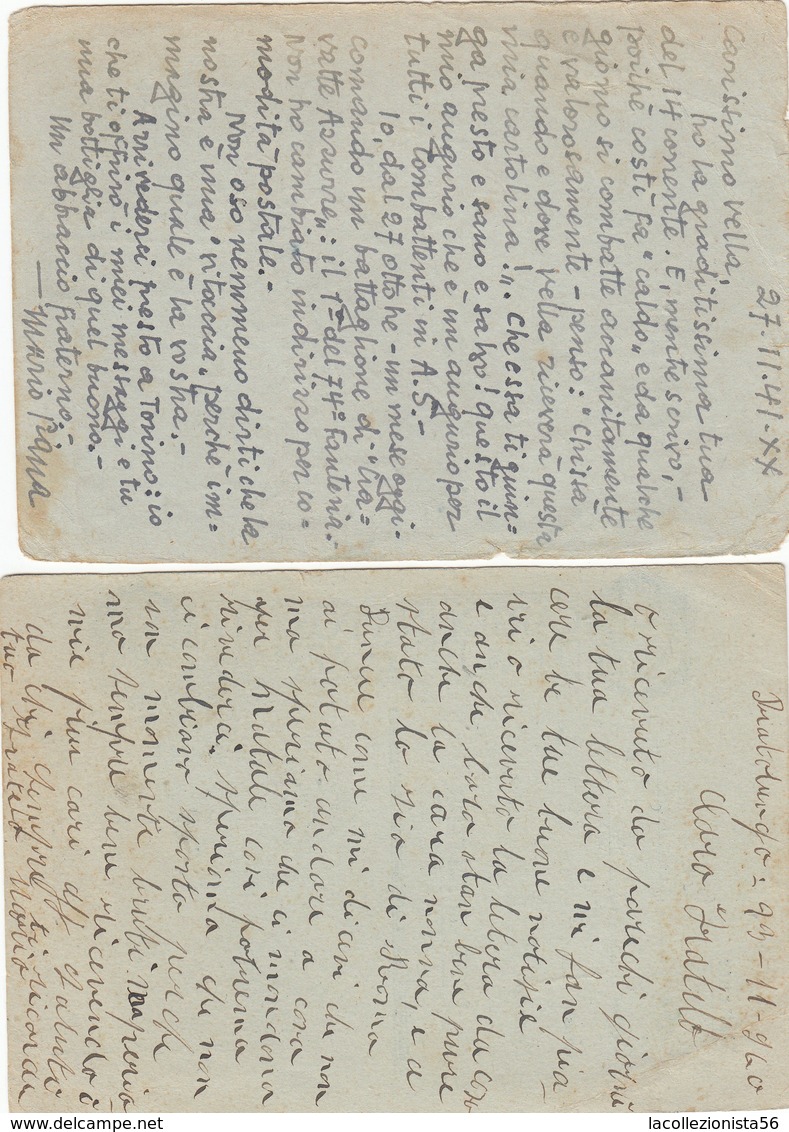 27.11.41.XX
Carissimo Vella,
ho la graditissima tua
del 14 corrente. E, mentre scrivo, -
poichè costì fa "caldo" e da qualche
giorno si combatte accanitamente
e valorosamente - penso: "Chissà
quando e dove Vella riceverà questa
mia cartolina!". Che essa ti giun=
ga presto e sano e salvo! questo il
mio augurio che è un augurio per
tutti i combattenti in A.S. -
Io, dal 27 ottobre - un mese oggi -
comando un battaglione di "Cra=
vatte Azzurre": il 1º del 74º Fanteria. -
Non ho cambiato indirizzo per co=
modità postale. -
Non oso nemmeno dirti che la
nostra è una "vitaccia" perchè im=
magino quale è la vostra. -
Arrivederci presto a Torino: io
che ti offrirò i miei messaggi e tu
una bottiglia di quel buono. -
Un abbraccio fraterno. -
— Mario Piana
Pratolungo = 23 - 11 - 940
Caro Fratello
o ricevuto da parechi giorni
la tua lettera e mi fan pia
cere le tue buone notizie
io o ricevuto la letera da casa
e anche loro stan bene pure
anche la cara nonna, e a
stato la zia di Roma
Dunue come mi dicevi che non
ai potuto andare a casa
ma speriamo che ci mandano
per Natale così potremo
rivederci. speriamo che non
ci cambiano sposto perche
un momento brutti
ma sempre bene ricevendo i
miei piu cari saluti
da chi sempre ti ricorda
tuo Fratello Mario
lacollezionista56